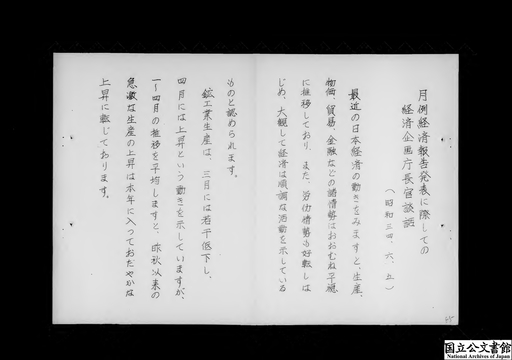 月例経済報告発表に際しての
経済企画庁長官談話
(昭和三四、六、五)
最近の日本経済の動きをみますと、生産、
物価、貿易、金融などの諸情勢はおおむね平穏
に推移しており、また、労働情勢も好転しは
じめ、大観して経済は順調な活動を示している
ものと認められます。
鉱工業生産は、三月には若干低下し、
四月には上昇という動きを示していますが、
一〜四月の推移を平均しますと、昨秋以来の
急激な生産の上昇は本年に入っておだやかな
上昇に転じております。
45
国立公文書館
National Archives of Japan